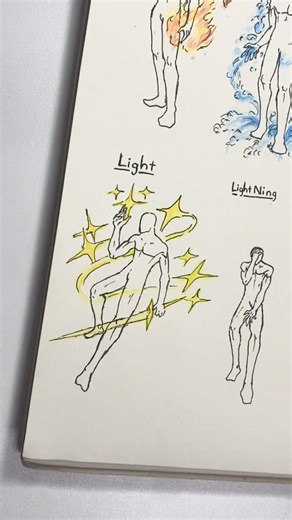 Light
LightNing